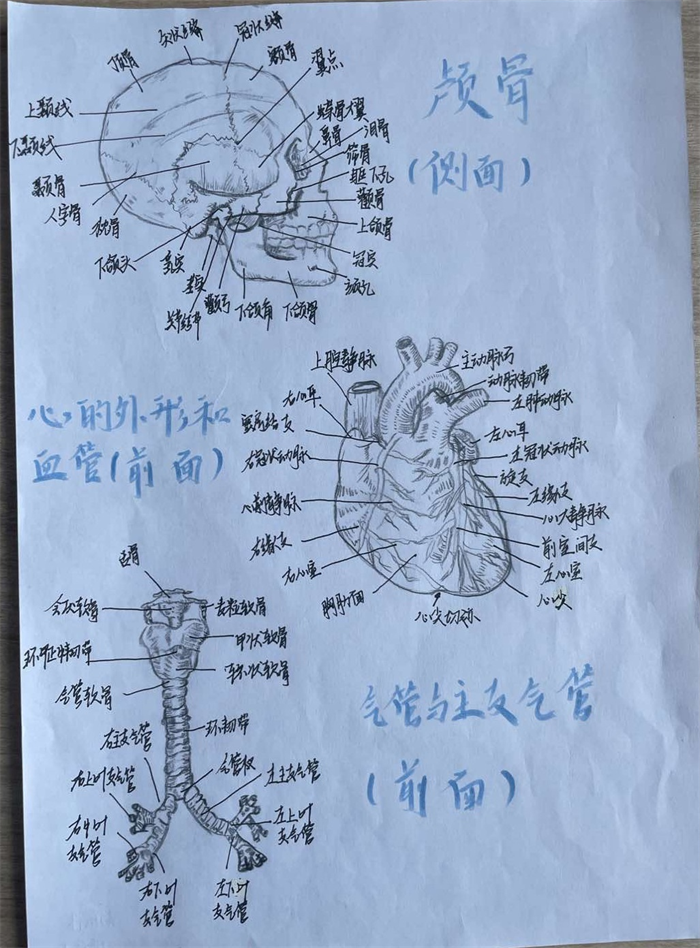 颅骨
(侧面)
冠状缝
顶骨
额骨
翼点
上颞线
下颞线
蝶骨大翼
鼻骨
泪骨
筛骨
眶下孔
颞骨
颧骨
人字骨
枕骨
上颌骨
下颌头
冠突
颧弓
下颌角
下颌骨
心的外形和
血管(前面)
上腔静脉
主动脉弓
动脉韧带
左肺动脉
右心耳
左心耳
右冠状动脉
左冠状动脉
旋支
左缘支
心前静脉
心大静脉
右缘支
前室间支
右心室
左心室
胸肋面
心尖切迹
心尖
气管与主支气管
(前面)
舌骨
会厌软骨
甲状软骨
环状软骨
气管软骨
环韧带
右主支气管
气管杈
左主支气管
右上叶支气管
左上叶
支气管
右中叶
支气管
右下叶
支气管
左下叶
支气管